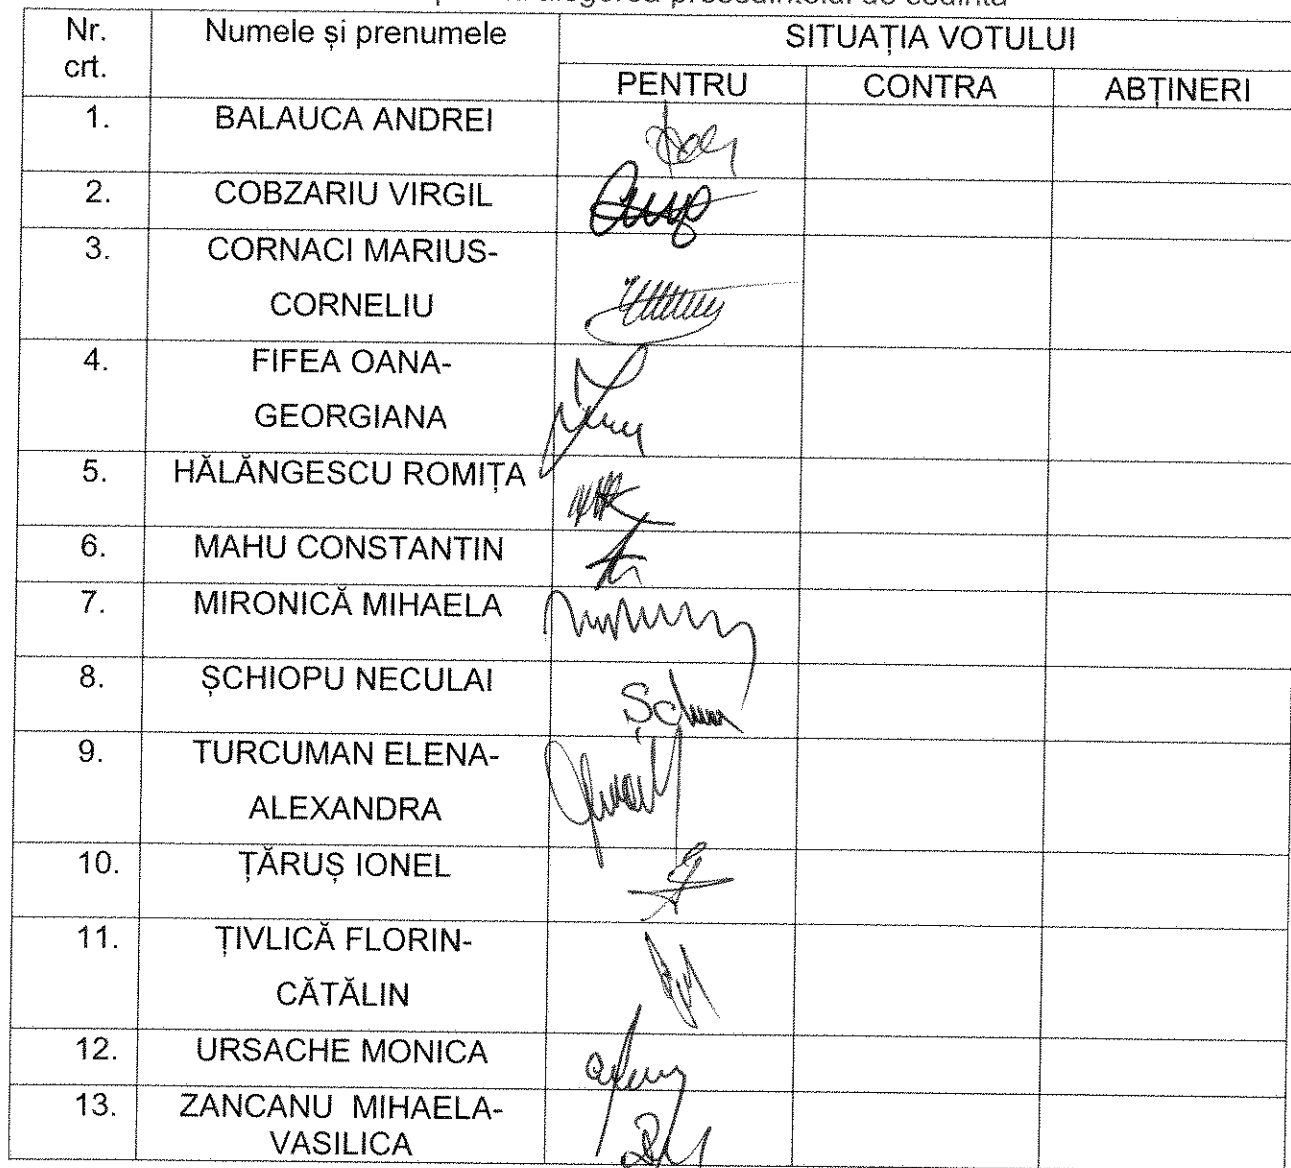 alegerea președintelui de ședință
Nr. crt. Numele și prenumele SITUAȚIA VOTULUI
PENTRU CONTRA ABȚINERI
1. BALAUCA ANDREI
2. COBZARIU VIRGIL
3. CORNACI MARIUS-
CORNELIU
4. FIFEA OANA-
GEORGIANA
5. HĂLĂNGESCU ROMIȚA
6. MAHU CONSTANTIN
7. MIRONICĂ MIHAELA
8. ȘCHIOPU NECULAI
9. TURCUMAN ELENA-
ALEXANDRA
10. ȚĂRUȘ IONEL
11. ȚIVLICĂ FLORIN-
CĂTĂLIN
12. URSACHE MONICA
13. ZANCANU MIHAELA-
VASILICA